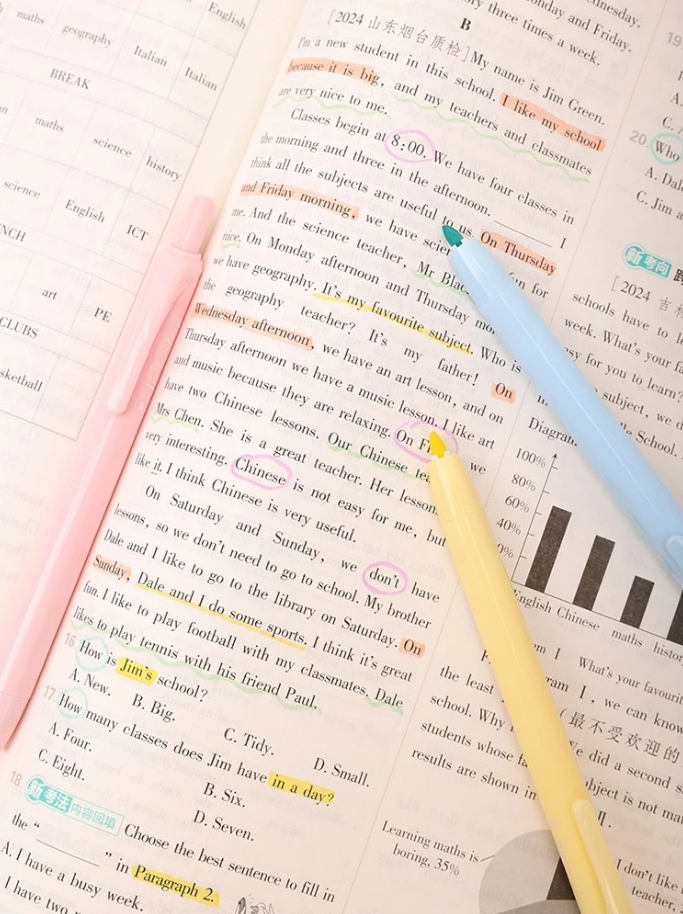 English
maths
geography
Italian
Italian
BREAK
maths
science
history
science
English
ICT
art
PE
CLUBS
three times a week.
B
[2024 山东烟台质检]My name is Jim Green.
I'm a new student in this school. I like my school
because it is big, and my teachers and classmates
are very nice to me.
Classes begin at 8:00. We have four classes in
the morning and three in the afternoon. ________ I
think all the subjects are useful to us. On Thursday
and Friday morning, we have
me. And the science teacher, Mr for
nice. On Monday afternoon and Thursday
we have geography. It's my favourite subject. Who is
the geography teacher? It's my father! On
Wednesday afternoon, we have an art lesson, and on
Thursday afternoon we have a music lesson. I like art
and music because they are relaxing. On we
have two Chinese lessons. Our Chinese
Mrs Chen. She is a great teacher. Her
very interesting. Chinese is not easy for me, but
like it. I think Chinese is very useful.
On Saturday and Sunday, we don't have
lessons, so we don't need to go to school. My brother
Dale and I like to go to the library on Saturday. On
Sunday, Dale and I do some sports. I think it's great
fun. I like to play football with my classmates. Dale
likes to play tennis with his friend Paul.
16. How is Jim's school?
A. New.
B. Big.
C. Tidy.
D. Small.
17. How many classes does Jim have in a day?
A. Four.
B. Six.
C. Eight.
D. Seven.
18. 新考法 内容回填 Choose the best sentence to fill in
the “________” in Paragraph 2.
A. I have a busy week.
I have two
19.
A.
C.
20. Who
A. Dale
C. Jim a
新考向 跨
[2024 吉
schools have to
week. What's your
for you to learn?
subject, we
School.
100%
80%
60%
40%
English Chinese maths
I What's your
the least I, we can know
school. Why (最不受欢迎的
students whose did a second
results are shown in subject is not
Learning maths is
boring, 35%
I don't like
teacher,